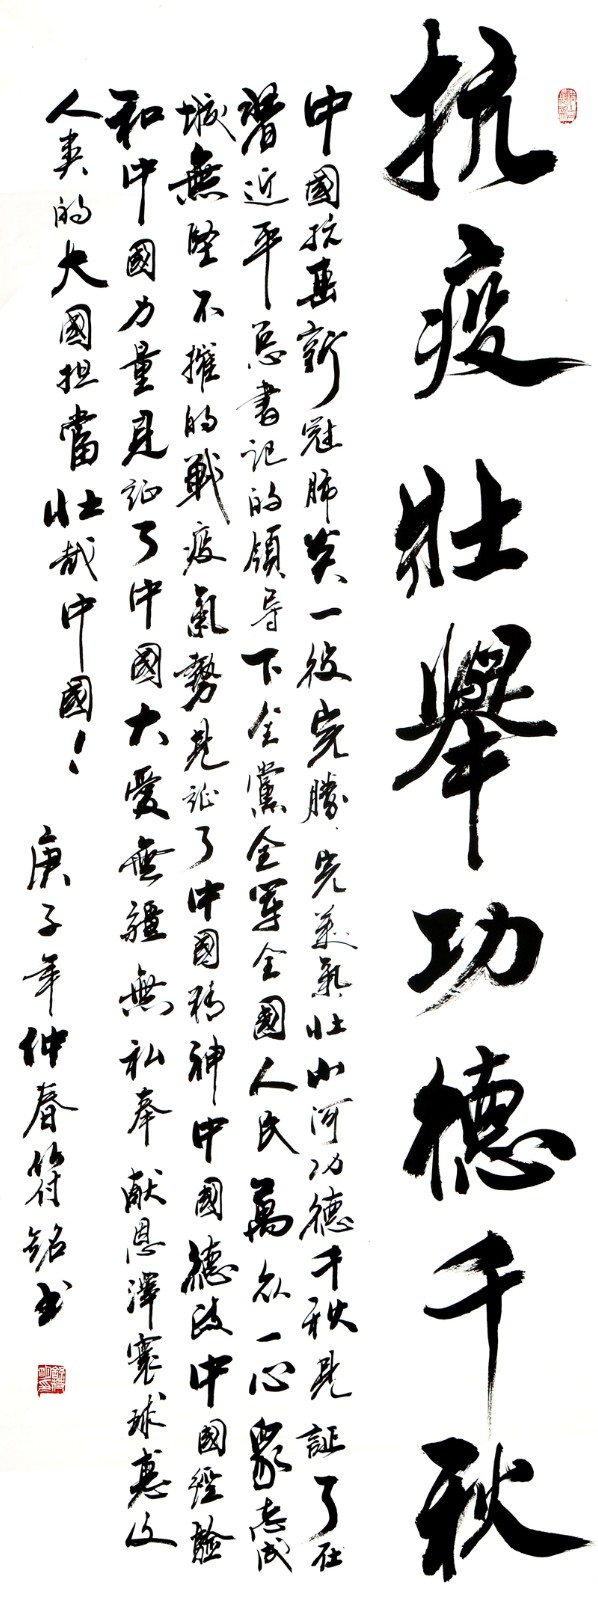 抗疫壮舉功德千秋
中國抗擊新冠肺炎一役完勝完美氣壮山河功德千秋見証了在
習近平总書记的領导下全黨全軍全國人民萬众一心眾志成
城無堅不摧的戰疫氣勢見证了中國精神中國德政中國經驗
和中國力量見证了中國大愛無疆無私奉献恩澤寰球惠及
人类的大國担當壮哉中國！
庚子年仲春符铭书